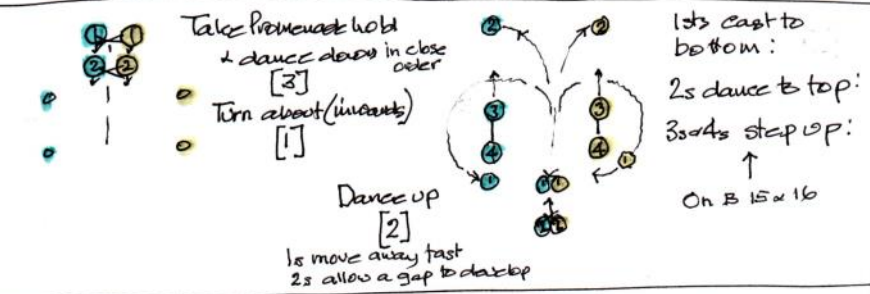 Take Promenade hold
& dance down in close
order
[3]
Turn about (inwards)
[1]
Dance up
[2]
1s move away fast
2s allow a gap to develop
1sts cast to
bottom:
2s dance to top:
3s & 4s step up:
On B 15 & 16
1 1
2 2
2 2
3 3
4 4
1 1
1 1
2 2